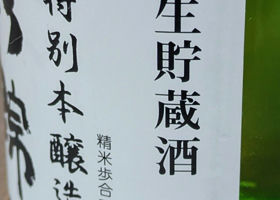 生貯蔵酒
特別本醸造
精米歩合